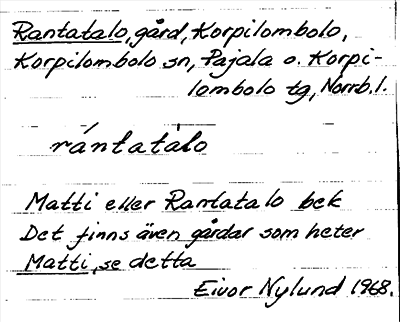 Rantatalo, gård, Korpilombolo,
Korpilombolo sn, Pajala o. Korpi-
lombolo tg, Norrb. l.
ràntatàlo
Matti eller Rantatalo bek
Det finns även gårdar som heter
Matti, se detta
Eivor Nylund 1968.